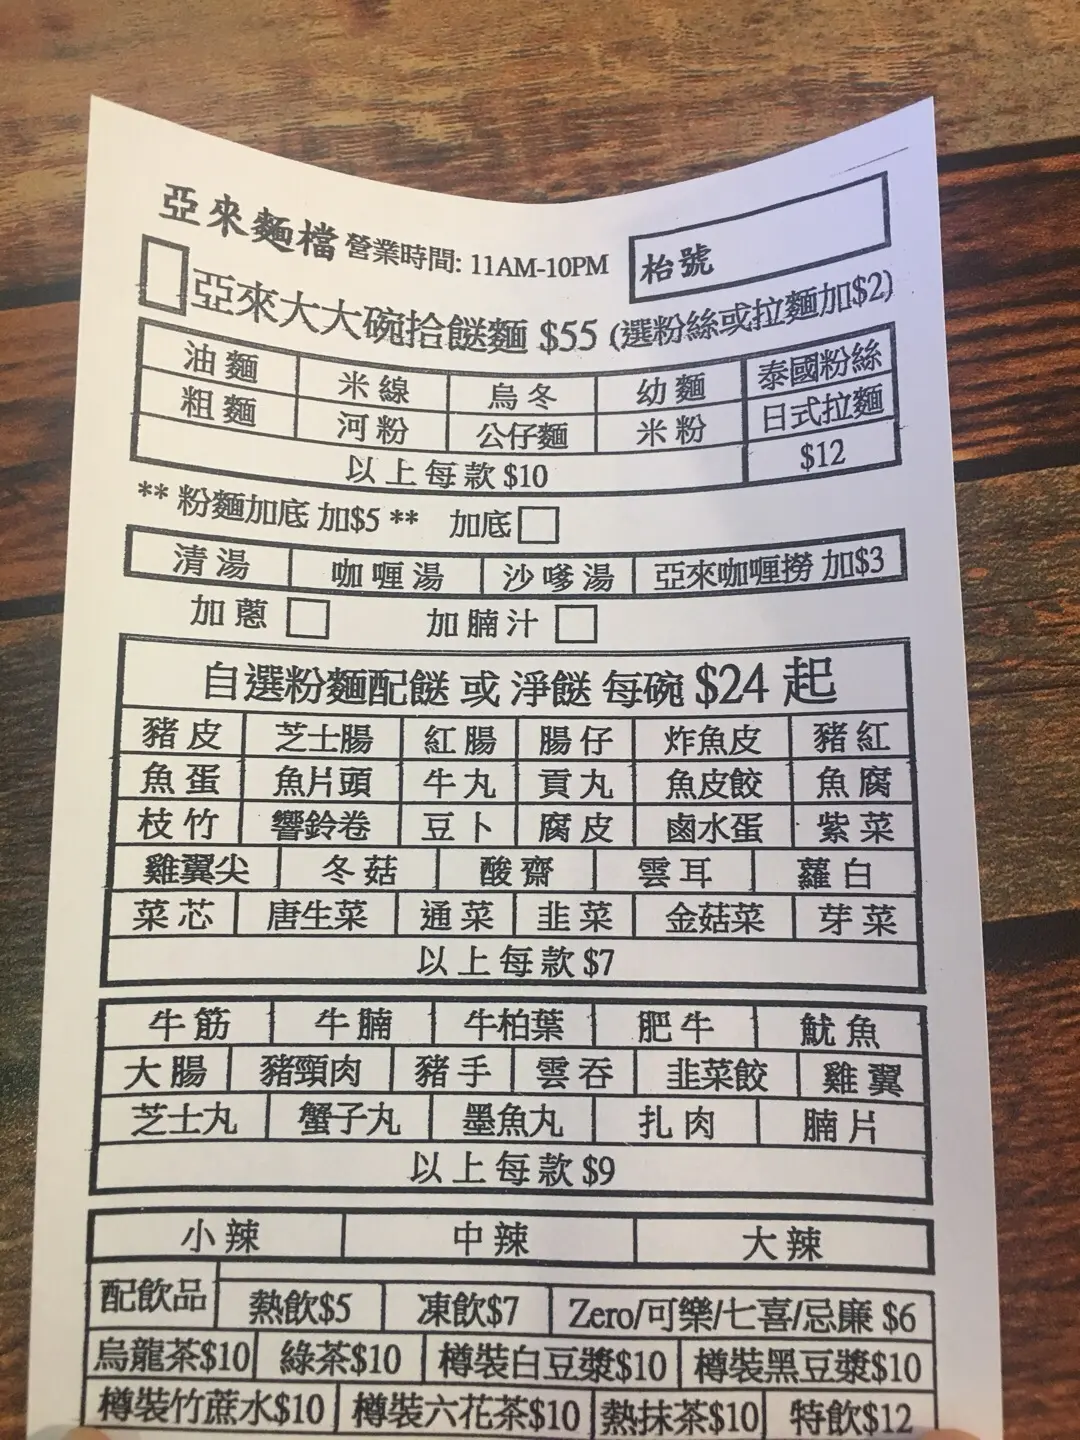 亞來麵檔 營業時間: 11AM-10PM 枱號
亞來大大碗拾餸麵 $55 (選粉絲或拉麵加$2)
油麵 米線 烏冬 幼麵 泰國粉絲
粗麵 河粉 公仔麵 米粉 日式拉麵
以上每款 $10 $12
** 粉麵加底 加$5 ** 加底
清湯 咖喱湯 沙嗲湯 亞來咖喱撈 加$3
加蔥 加腩汁
自選粉麵配餸 或 淨餸 每碗 $24 起
豬皮 芝士腸 紅腸 腸仔 炸魚皮 豬紅
魚蛋 魚片頭 牛丸 貢丸 魚皮餃 魚腐
枝竹 響鈴卷 豆卜 腐皮 鹵水蛋 紫菜
雞翼尖 冬菇 酸齋 雲耳 蘿白
菜芯 唐生菜 通菜 韭菜 金菇菜 芽菜
以上每款 $7
牛筋 牛腩 牛柏葉 肥牛 魷魚
大腸 豬頸肉 豬手 雲吞 韭菜餃 雞翼
芝士丸 蟹子丸 墨魚丸 扎肉 腩片
以上每款 $9
小辣 中辣 大辣
配飲品 熱飲$5 凍飲$7 Zero/可樂/七喜/忌廉 $6
烏龍茶$10 綠茶$10 樽裝白豆漿$10 樽裝黑豆漿$10
樽裝竹蔗水$10 樽裝六花茶$10 熱抹茶$10 特飲$12